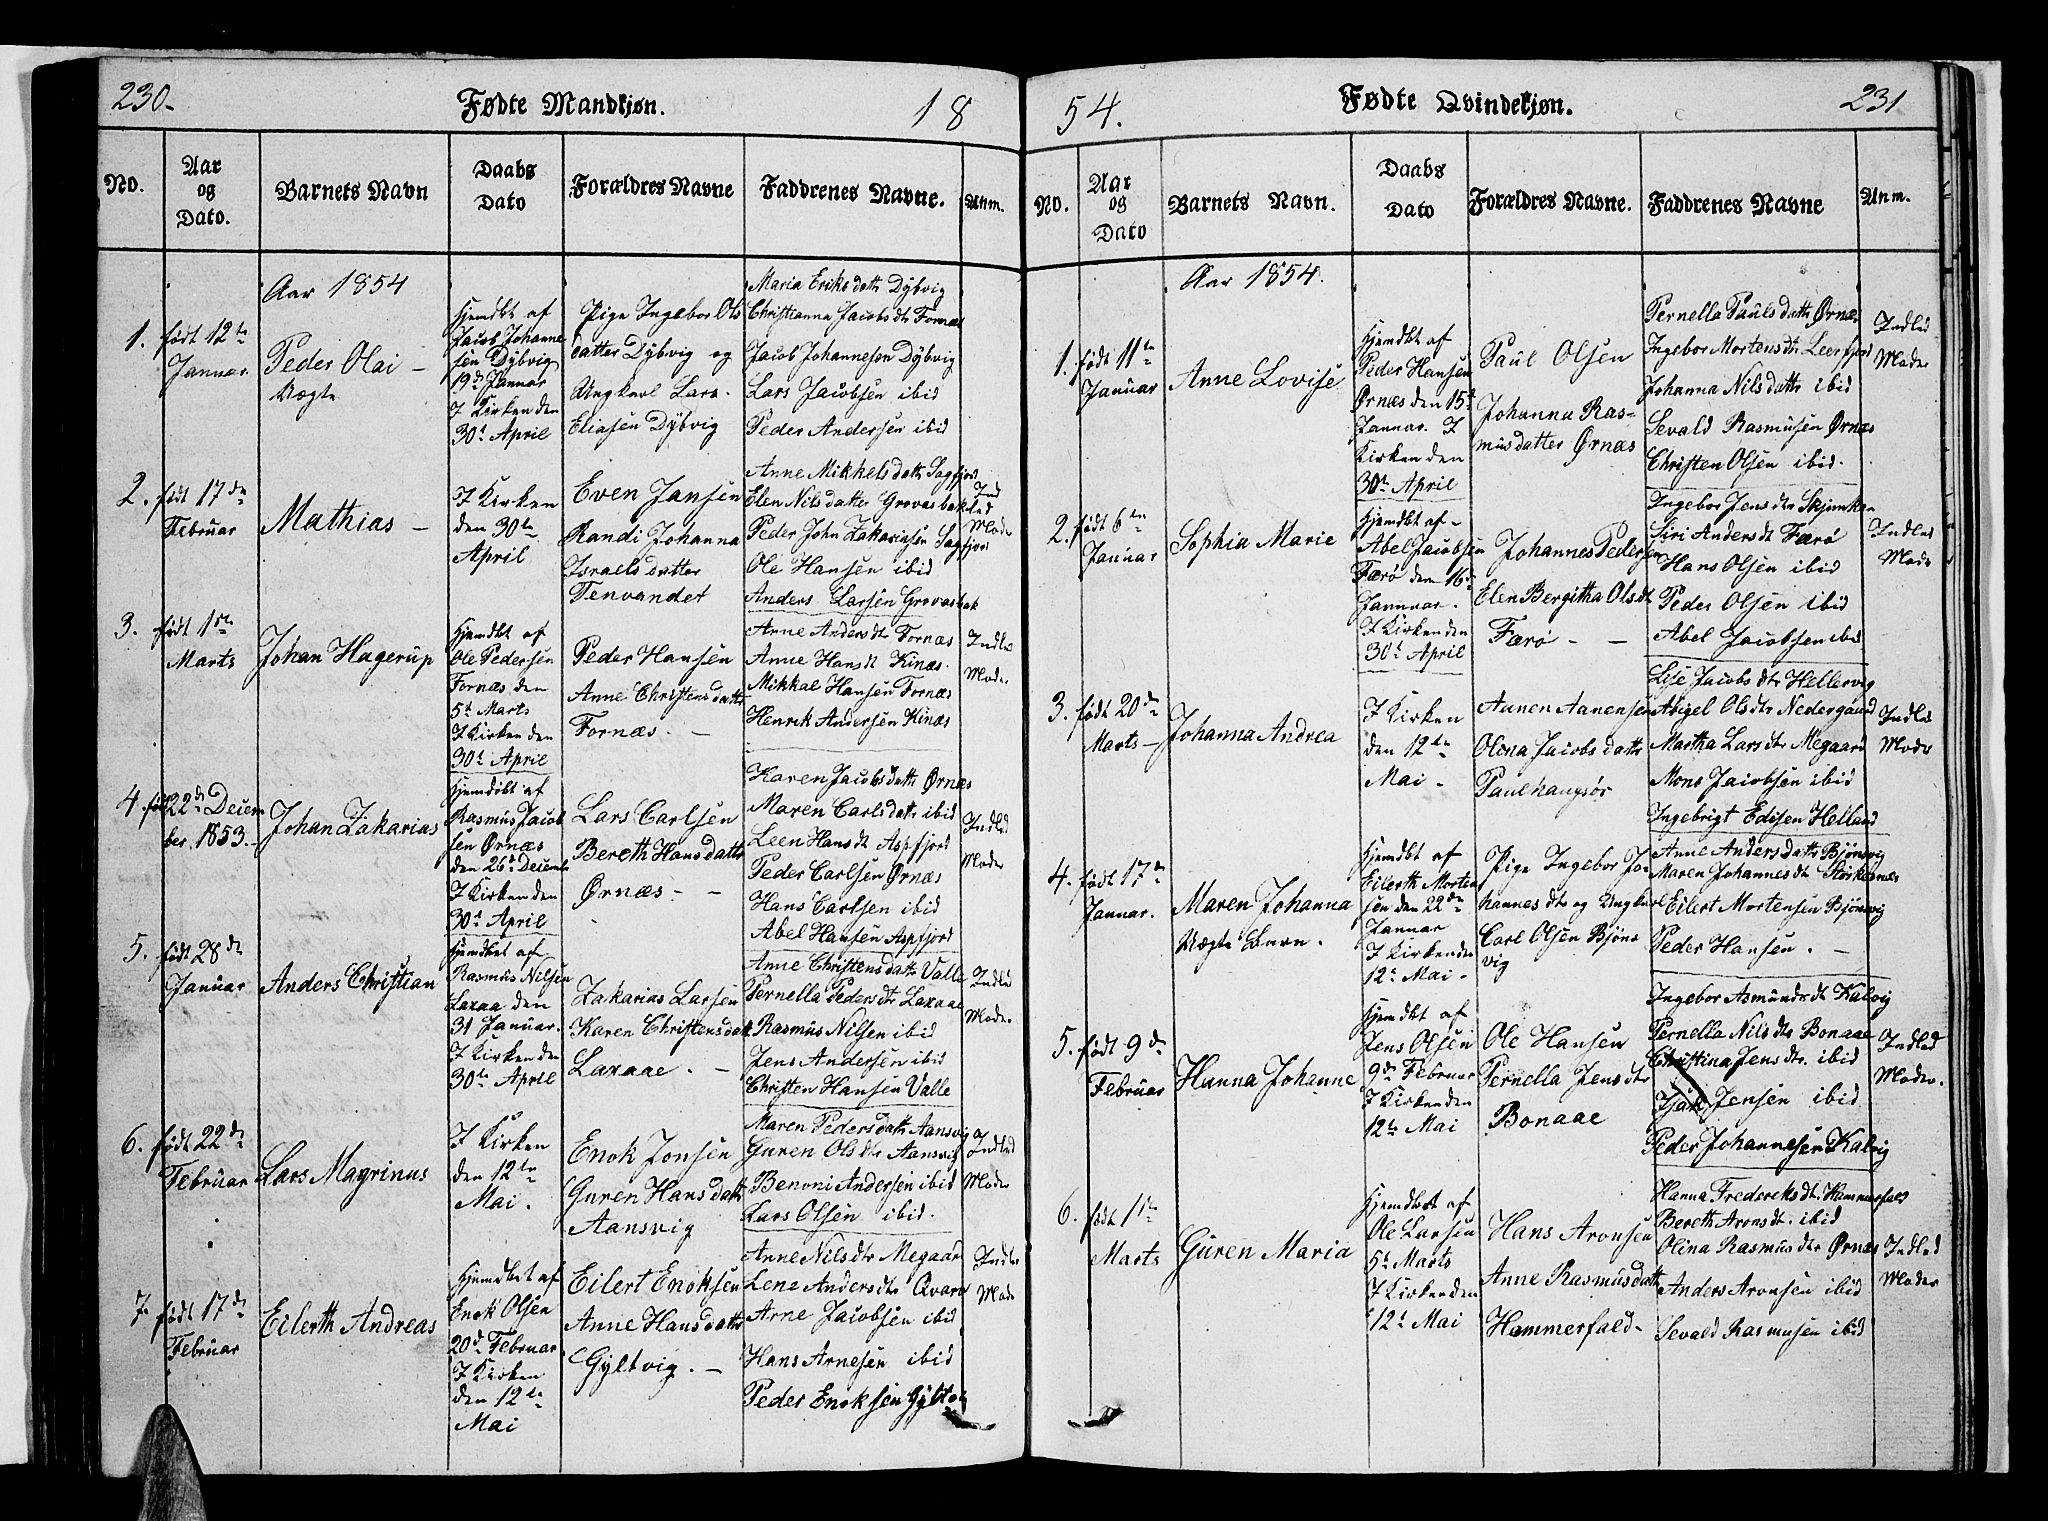 230.
Fødte Mandkjøn.
18
No.
Aar og Dato.
Barnets Navn
Daabs Dato
Forældres Navne
Faddrenes Navne.
Anm.
Aar 1854
1.
født 12te
Januar
Peder Olai
Uægte
Hjemdbt af
Jacob Johanne
sen Dybvig
19d Januar
I Kirken den
30t April
Pige Ingebor Ols
datter Dybvig og
Ungkarl Lars
Eliasen Dybvig
Maria Eriksdattr Dybvig
Christianna Jacobsdtr Fornæs
Jacob Johannesen Dybvig
Lars Jacobsen ibid
Peder Andersen ibid
2.
født 17de
Februar
Mathias
I Kirken
den 30te
April
Even Jansen
Randi Johanna
Israelsdatter
Tenvandet
Anne Mikkelsdattr Sagfjord
Elen Nilsdatter Grovasbak
Peder John Zakariasen Sagfjord
Ole Hansen ibid
Anders Larsen Grovasbak
Ind
led
Mode
3.
født 1ste
Marts
Johan Hagerup
Hjemdbt af
Ole Pedersen
Fornæs den
5t Marts
I Kirken den
30t April
Peder Hansen
Anne Christensdattr
Fornæs.
Anne Andersdtr Fornæs
Anne Hansdt Kinæs.
Mikkal Hansen Fornæs
Henrik Andersen Kinæs
Indled
Moder
4.
født 22de Decem
ber 1853.
Johan Zakarias
Hjemdøbt af
Rasmus Jacob
sen Ørnæs
den 26d Decemb
I Kirken den
30t April
Lars Carlsen
Bereth Hansdattr
Ørnæs
Karen Jacobsdattr Ørnæs
Maren Carlsdattr ibid
Leen Hansdt Aspfjord
Peder Carlsen Ørnæs
Hans Carlsen ibid
Abel Hansen Aspfjord
Indled
Moder
5.
født 28de
Januar
Anders Christian
Hjemdbet af
Rasmus Nilsen
Laxaa den
31 Januar.
I Kirken den
30te April
Zakarias Larsen
Karen Christensdatt
Laxaae.
Anne Christensdattr Valle
Pernella Pedersdtr Laxaae
Rasmus Nilsen ibid
Jens Andersen ibid
Christen Hansen Valle
Indled
Moder
6.
født 22de
Februar
Lars Magrinus
I Kirken
den 12te
Mai.
Enok Jonsen
Guren Hansdattr
Aansvig
Maren Pedersdattr Aansvig
Guren Olsdtr Aansvig
Benoni Andersen ibid
Lars Olsen ibid.
Indled
Moder
7.
født 17de
Februar
Eilerth Andreas
Hjemdbet af
Enok Olsen
20d Februar
I Kirken
den 12te
Mai
Eilert Enoksen
Anne Hansdattr
Gyltvig.
Anne Nilsdtr Megaar
Lene Andersdtr Qvarv
Arne Jacobsen ibid
Hans Arnesen ibid
Peder Enoksen Gyltv
Indled
Mode
54.
Fødte Qvindekjøn.
231
No.
Aar og Dato
Barnets Navn.
Daabs Dato
Forældres Navne.
Faddrenes Navne
Anm.
Aar 1854.
1.
født 11te
Januar
Anne Lovise
Hjemdbt af
Peder Hansen
Ørnæs den 15d
Januar. I
Kirken den
30te April
Paul Olsen
Johanna Ras-
musdatter Ørnæs
Pernella Paulsdattr Ørnæs
Ingebor Mortensdtr Leerfjord
Johanna Nilsdattr ibid
Sevald Rasmusen Ørnæs
Christen Olsen ibid.
Indled
Moder
2.
født 6te
Januar
Sophia Marie
Hjemdbt af
Abel Jacobsen
Færø den 16d
Januar.
I Kirken den
30t April
Johannes Pedersen
Elen Bergitha Olsdt
Færø
Ingebor Jensdtr Skjomken
Siri Andersdt Færø
Hans Olsen ibid
Peder Olsen ibid
Abel Jacobsen ibid
Indled
Mode
3.
født 20de
Marts
Johanna Andrea
I Kirken
den 12te
Mai
Aanen Aanensen
Olena Jacobsdattr
Paulhaugsør
Lise Jacobsdtr Hellervig
Abigel Olsdtr Nedergaard
Martha Larsdtr Megaard
Mons Jacobsen ibid
Ingebrigt Edisen Helland
Indled
Mode
4.
født 17de
Januar.
Maren Johanna
Uægte Barn.
Hjemdbt af
Eilerth Morten
sen den 22de
Januar
I Kirken den
12te Mai
Pige Ingebor Jo-
hannesdt og Ungkarl
Carl Olsen Bjøns
vig
Anne Andersdattr Bjønsvig
Maren Johannesdt Storkesnæs
Eilert Mortensen Bjønsvig
Peder Hansen.
5.
født 9de
Februar
Hanna Johanne
Hjemdbt af
Jens Olsen
9de Februar
I Kirken den
12te Mai
Ole Hansen
Pernella Jensdtr
Bonaae
Ingebor Asmundsdt Kalvig
Pernella Nilsdtr Bonaae
Christina Jensdtr. ibid
Isak Jensen ibid
Peder Johannesen Kalvig
Indled
Moder.
6.
født 1ste
Marts
Guren Maria
Hjemdbet af
Ole Larsen
5t Marts
I Kirken den
12t Mai
Hans Aronsen
Anne Rasmusdattr
Hammerfald
Hanna Frederiksdt. Hammerfald
Bereth Aronsdt. ibid
Olina Rasmusdtr Ørnæs
Anders Aronsen ibid
Sevald Rasmusen ibid
Indled
Moder